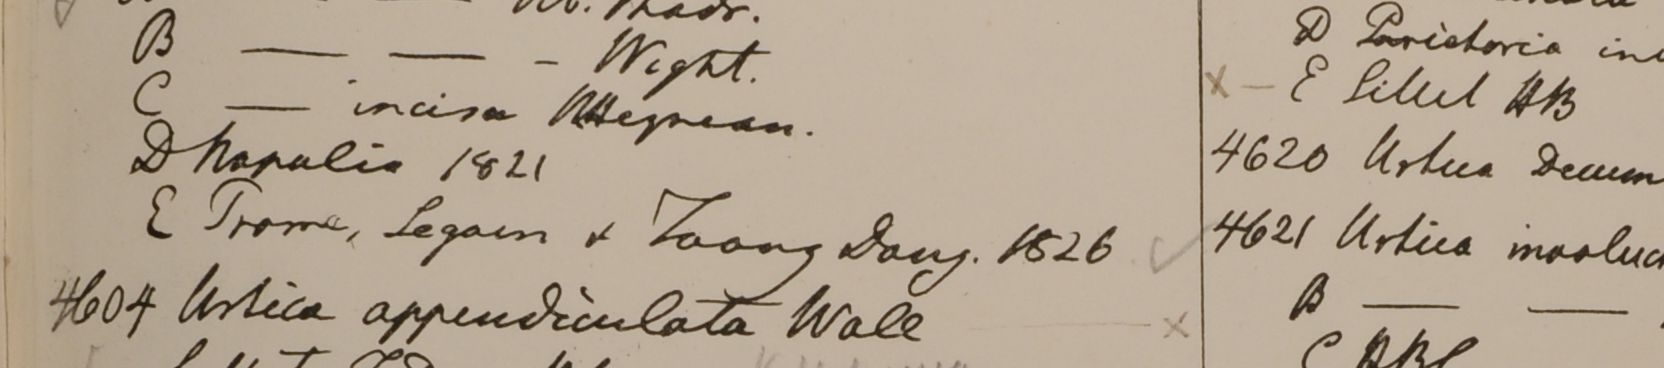 B — — - Wight.
C — incisa
D Napalia 1821
E Prome, Segaen & Taong Dong. 1826
4604 Urtica appendiculata Wall
D Parietaria
x - E Sillet HB
4620 Urtica Decum
4621 Urtica involuc
B — —
C HBC